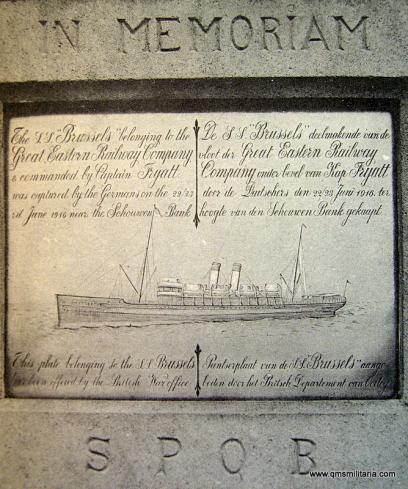 IN MEMORIAM
The S.S. "Brussels" belonging to the
Great Eastern Railway Company
& commanded by Captain Fryatt,
was captured by the Germans on the 22/23
rd June 1916 near the Schouwen Bank
De S.S. "Brussels" deelmakende van de
vloot der Great Eastern Railway
Company onder bevel van Kap Fryatt
door de Duitschers den 22/23 Juni 1916. ter
hoogte van den Schouwen Bank gekaapt.
This plate belonging to the S.S. Brussels
has been offered by the British War office
van de S.S. "Brussels" aange-
boden door het Britsch Departement van
S P O R
www.qmsmilitaria.com